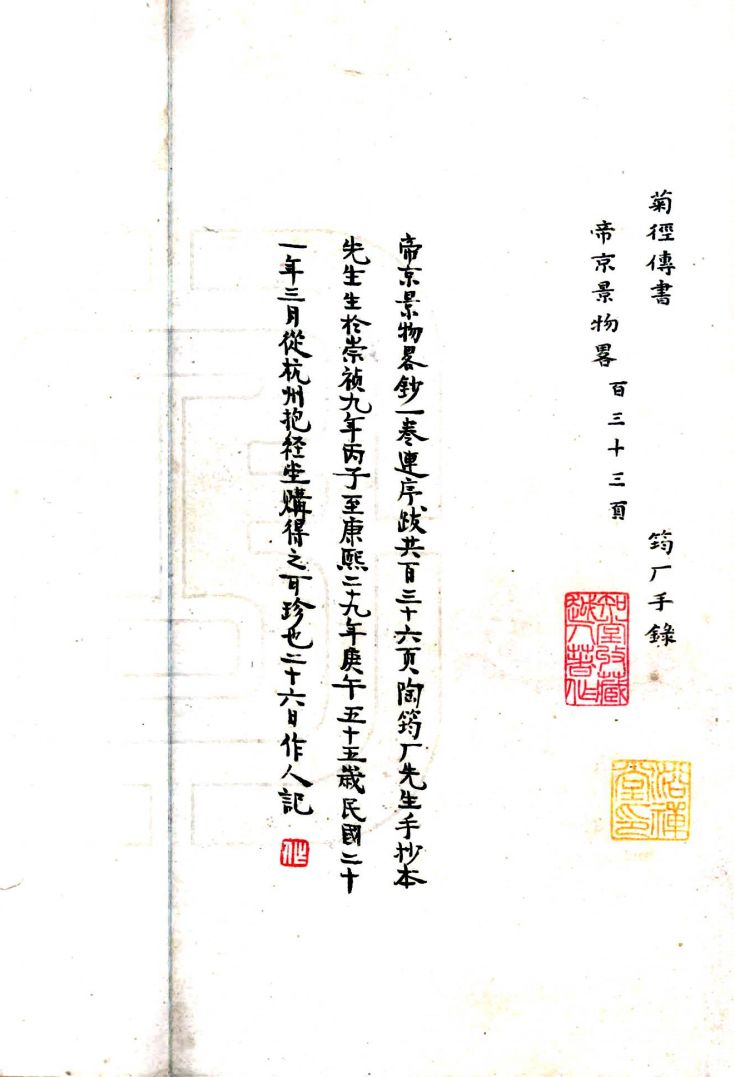 菊徑傳書
筠厂手錄
帝京景物畧
百三十三頁
知堂收藏
越人著作
浴禅
堂印
帝京景物畧鈔一卷連序跋共百三十六頁陶筠厂先生手抄本
先生生於崇禎九年丙子至康熙二十九年庚午五十五歲民國二十
一年三月從杭州抱経堂購得之可珍也二十六日作人記
作